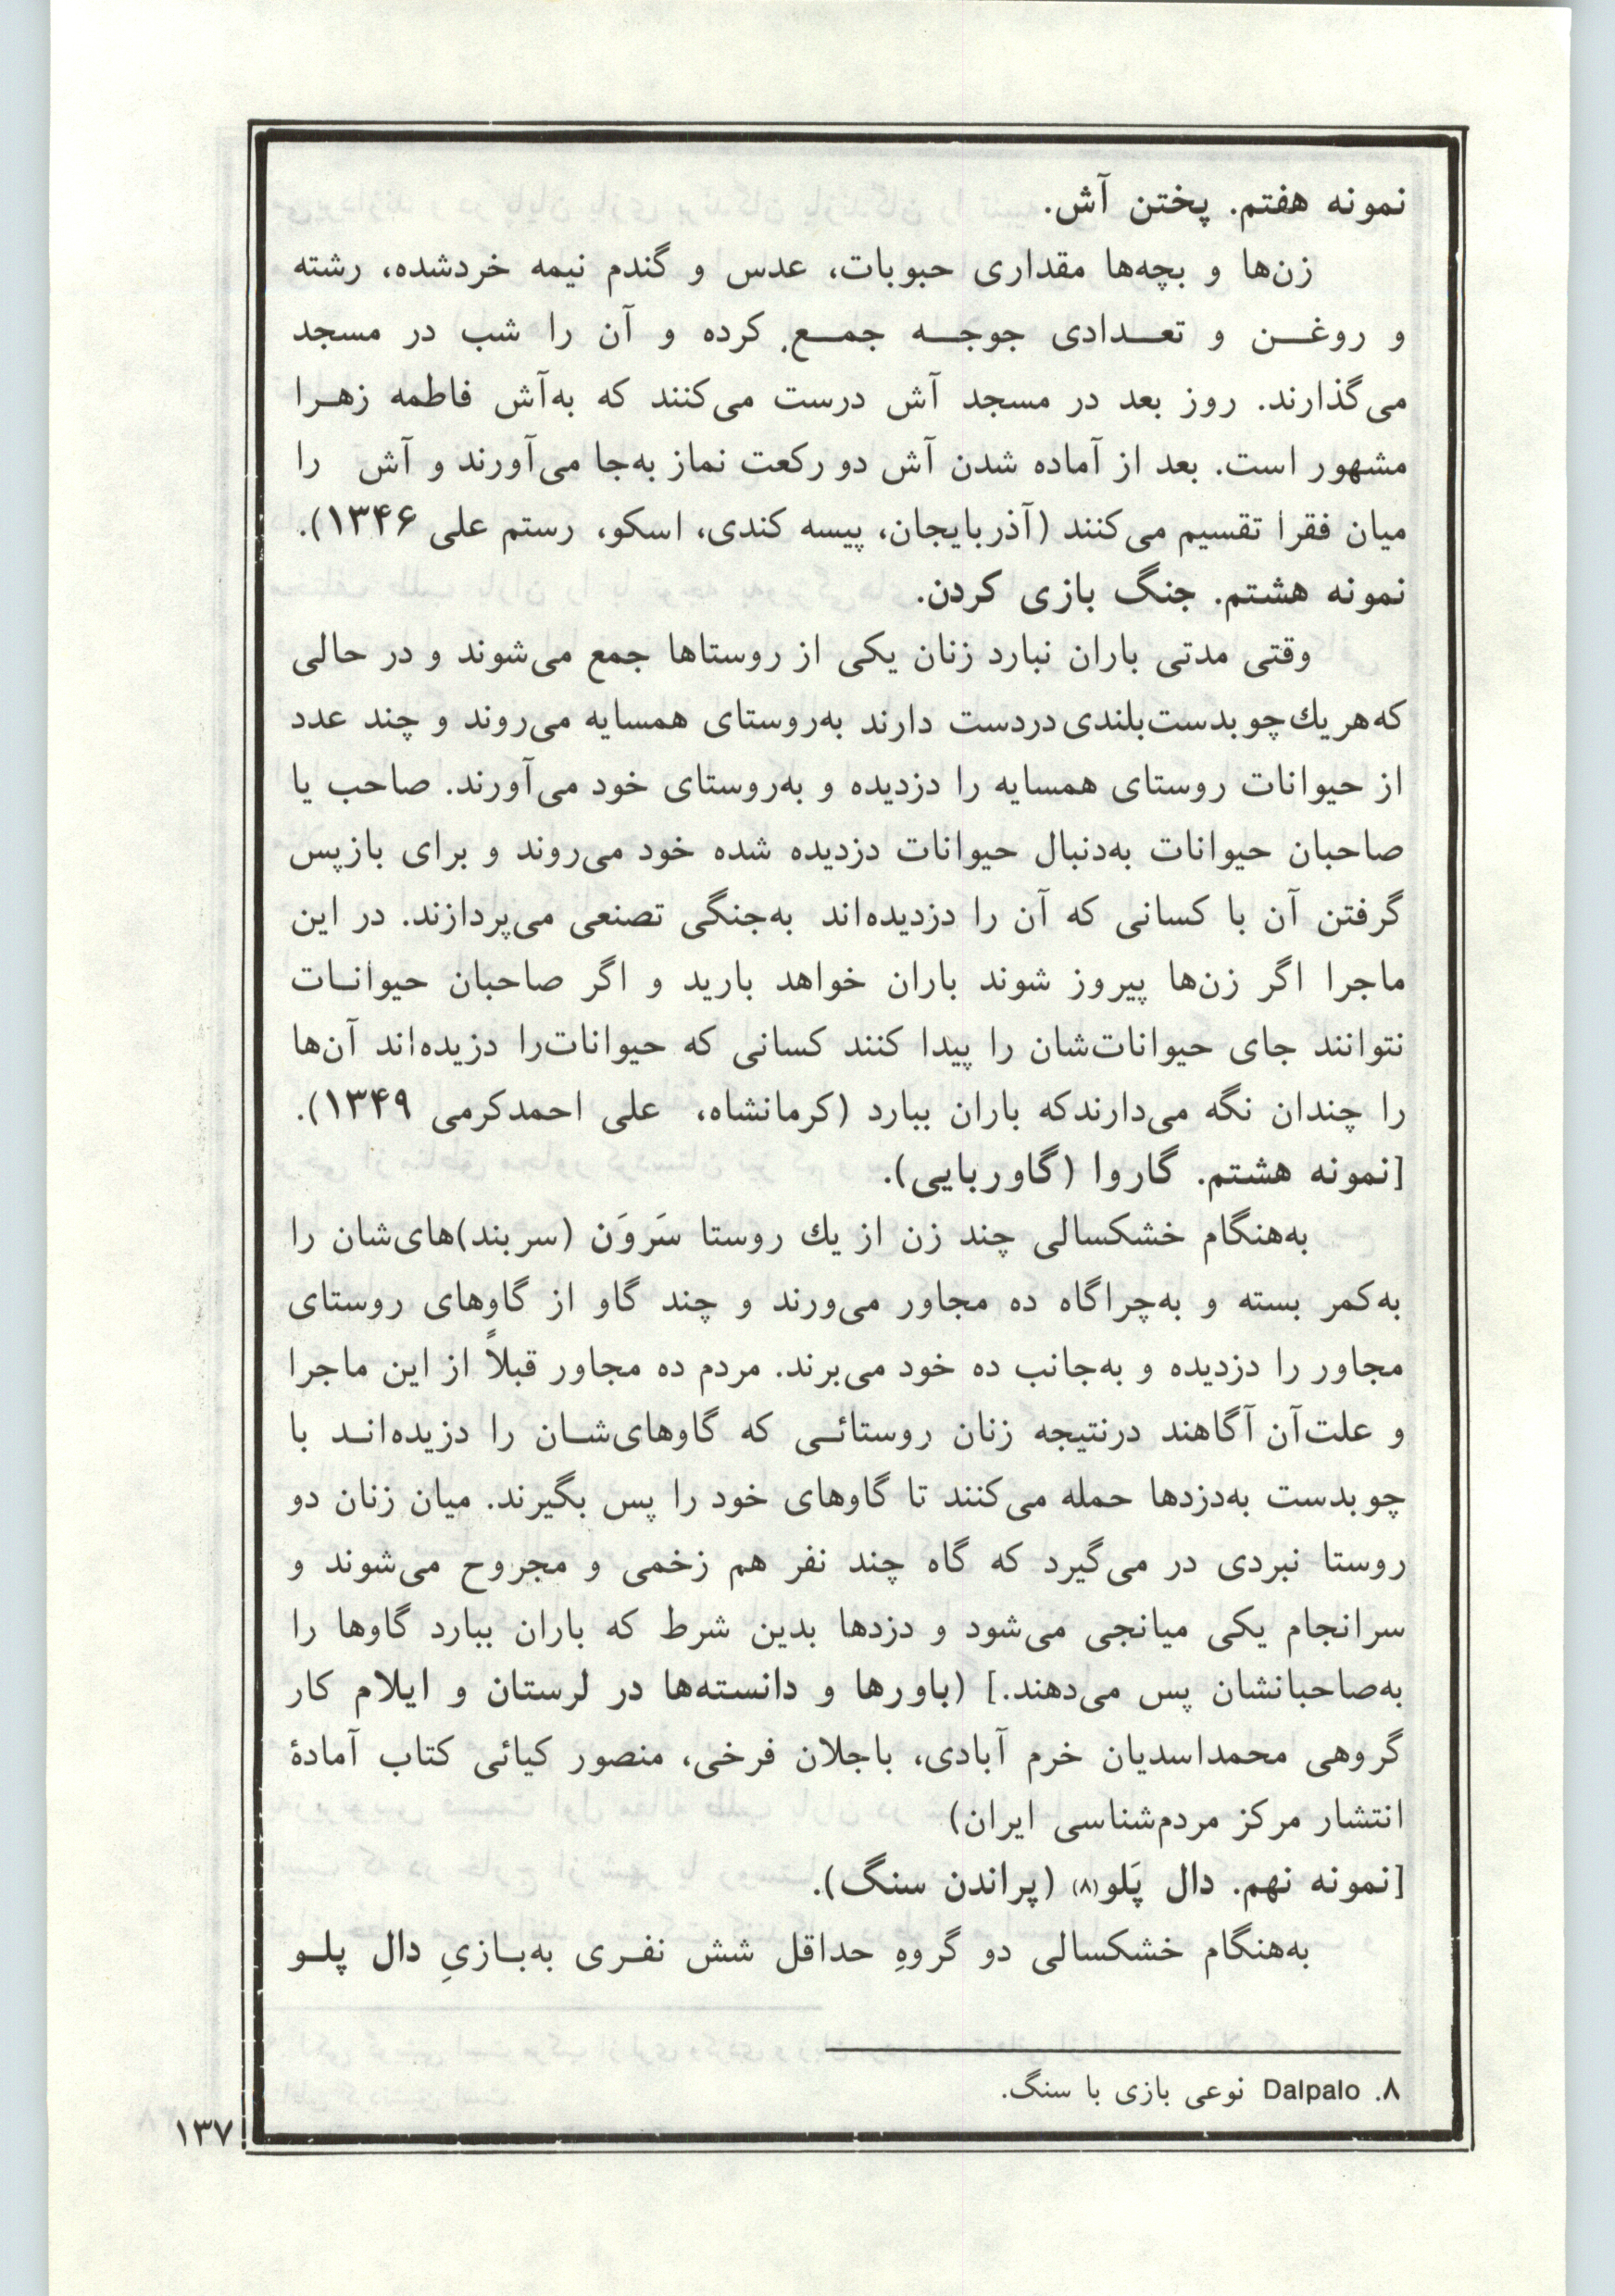 نمونه هفتم. پختن آش.
زن‌ها و بچه‌ها مقداری حبوبات، عدس و گندم نیمه خردشده، رشته
و روغن و تعدادی جوجه جمع کرده و آن را شب در مسجد
می‌گذارند. روز بعد در مسجد آش درست می‌کنند که به‌آش فاطمه زهرا
مشهور است. بعد از آماده شدن آش دو رکعت نماز به‌جا می‌آورند و آش را
میان فقرا تقسیم می‌کنند (آذربایجان، پیسه کندی، اسکو، رستم علی ۱۳۴۶).
نمونه هشتم. جنگ بازی کردن.
وقتی مدتی باران نبارد زنان یکی از روستاها جمع می‌شوند و در حالی
که هریك چوبدست بلندی دردست دارند به‌روستای همسایه می‌روند و چند عدد
از حیوانات روستای همسایه را دزدیده و به‌روستای خود می‌آورند. صاحب یا
صاحبان حیوانات به‌دنبال حیوانات دزدیده شده خود می‌روند و برای بازپس
گرفتن آن با کسانی که آن را دزدیده‌اند به‌جنگی تصنعی می‌پردازند. در این
ماجرا اگر زن‌ها پیروز شوند باران خواهد بارید و اگر صاحبان حیوانات
نتوانند جای حیوانات‌شان را پیدا کنند کسانی که حیوانات‌را دزیده‌اند آن‌ها
را چندان نگه می‌دارندکه باران ببارد (کرمانشاه، علی احمدکرمی ۱۳۴۹).
[نمونه هشتم. گاروا (گاوربایی).
به‌هنگام خشکسالی چند زن از یك روستا سَروَن (سربند)های‌شان را
به‌کمر بسته و به‌چراگاه ده مجاور می‌ورند و چند گاو از گاوهای روستای
مجاور را دزدیده و به‌جانب ده خود می‌برند. مردم ده مجاور قبلاً از این ماجرا
و علت‌آن آگاهند درنتیجه زنان روستائی که گاوهای‌شان را دزیده‌اند با
چوبدست به‌دزدها حمله می‌کنند تا گاوهای خود را پس بگیرند. میان زنان دو
روستا نبردی در می‌گیرد که گاه چند نفر هم زخمی و مجروح می‌شوند و
سرانجام یکی میانجی می‌شود و دزدها بدین شرط که باران ببارد گاوها را
به‌صاحبانشان پس می‌دهند.] (باورها و دانسته‌ها در لرستان و ایلام کار
گروهی محمداسدیان خرم آبادی، باجلان فرخی، منصور کیائی کتاب آمادهٔ
انتشار مرکز مردم‌شناسی ایران)
[نمونه نهم. دال پَلو(۸) (پراندن سنگ).
به‌هنگام خشکسالی دو گروهِ حداقل شش نفری به‌بازیِ دال پلو
۸. Dalpalo نوعی بازی با سنگ.
۱۳۷